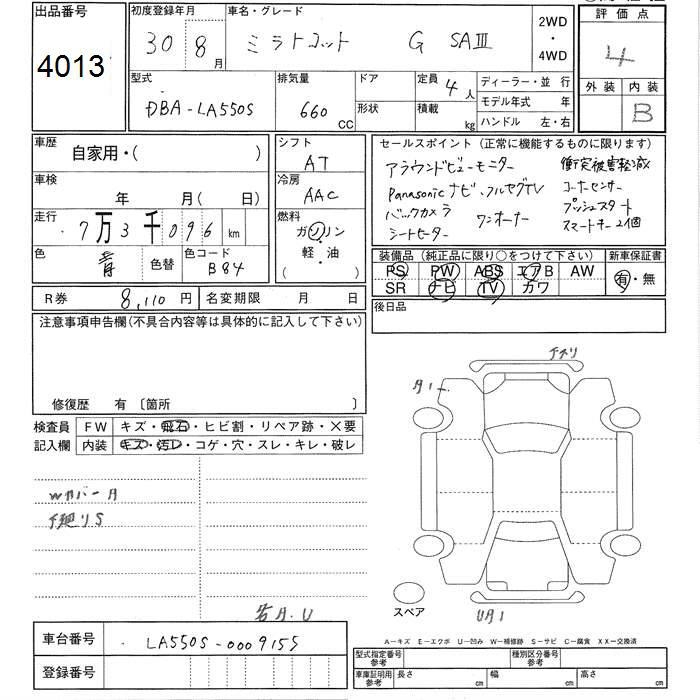 出品番号
4013
初度登録年月
30 8 月
車名・グレード
ミラトコット G SAⅢ
2WD
・
4WD
評価点
4
外装 内装
B
型式
DBA-LA550S
排気量
660 CC
ドア
形状
定員 4 人
積載 kg
ディーラー・並 行
モデル年式 年
ハンドル 左・右
車歴
自家用・( )
シフト
AT
車検
年 月( 日)
冷房
AAC
走行
7万3千096 km
燃料
ガソリン
軽・油
( )
色
青
色替
色コード
B84
セールスポイント (正常に機能するものに限ります)
アラウンドビューモニター 衝突被害軽減
Panasonicナビ、フルセグTV コーナーセンサー
バックカメラ ワンオーナー プッシュスタート
シートヒーター スマートキー2個
装備品(純正品に限り○をつけて下さい)
PS PW ABS エアB AW
SR ナビ TV カワ
新車保証書
有・無
R券 8,110 円
名変期限 月 日
後日品
注意事項申告欄(不具合内容等は具体的に記入して下さい)
修復歴 有 〔箇所 〕
検査員
記入欄
FW キズ・飛石・ヒビ割・リペア跡・×要
内装 キズ・汚レ・コゲ・穴・スレ・キレ・破レ
下廻りS
下スリ
スペア
A-キズ E-エクボ U-凹み W-補修跡 S-サビ C-腐食 XX-交換済
車台番号
LA550S-0009155
登録番号
型式指定番号
参考
種別区分番号
参考
車庫証明用
参考
長さ cm
幅 cm
高さ cm